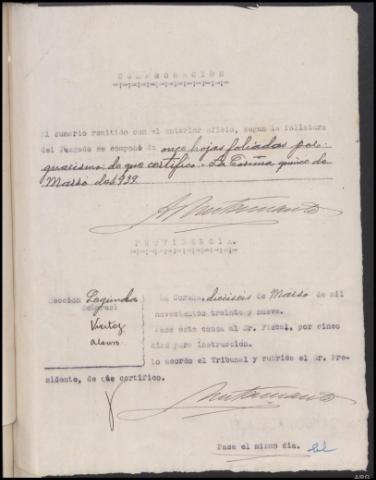 COMPROBACIÓN
El sumario remitido con el anterior oficio, segun la foliatura
del Juzgado se compone de once hojas foliadas
de que certifico. La Coruña quince de
Marzo de 1939

PROVIDENCIA.
Sección Segunda
La Coruña, dieciseis de Marzo de mil
novecientos treinta y nueve.
Pase esta causa al Sr. Fiscal, por cinco
dias para instrucción.
Lo acordo el Tribunal y rubrica el Sr. Pre-
sidente, de que certifico.

Pasa el mismo dia.